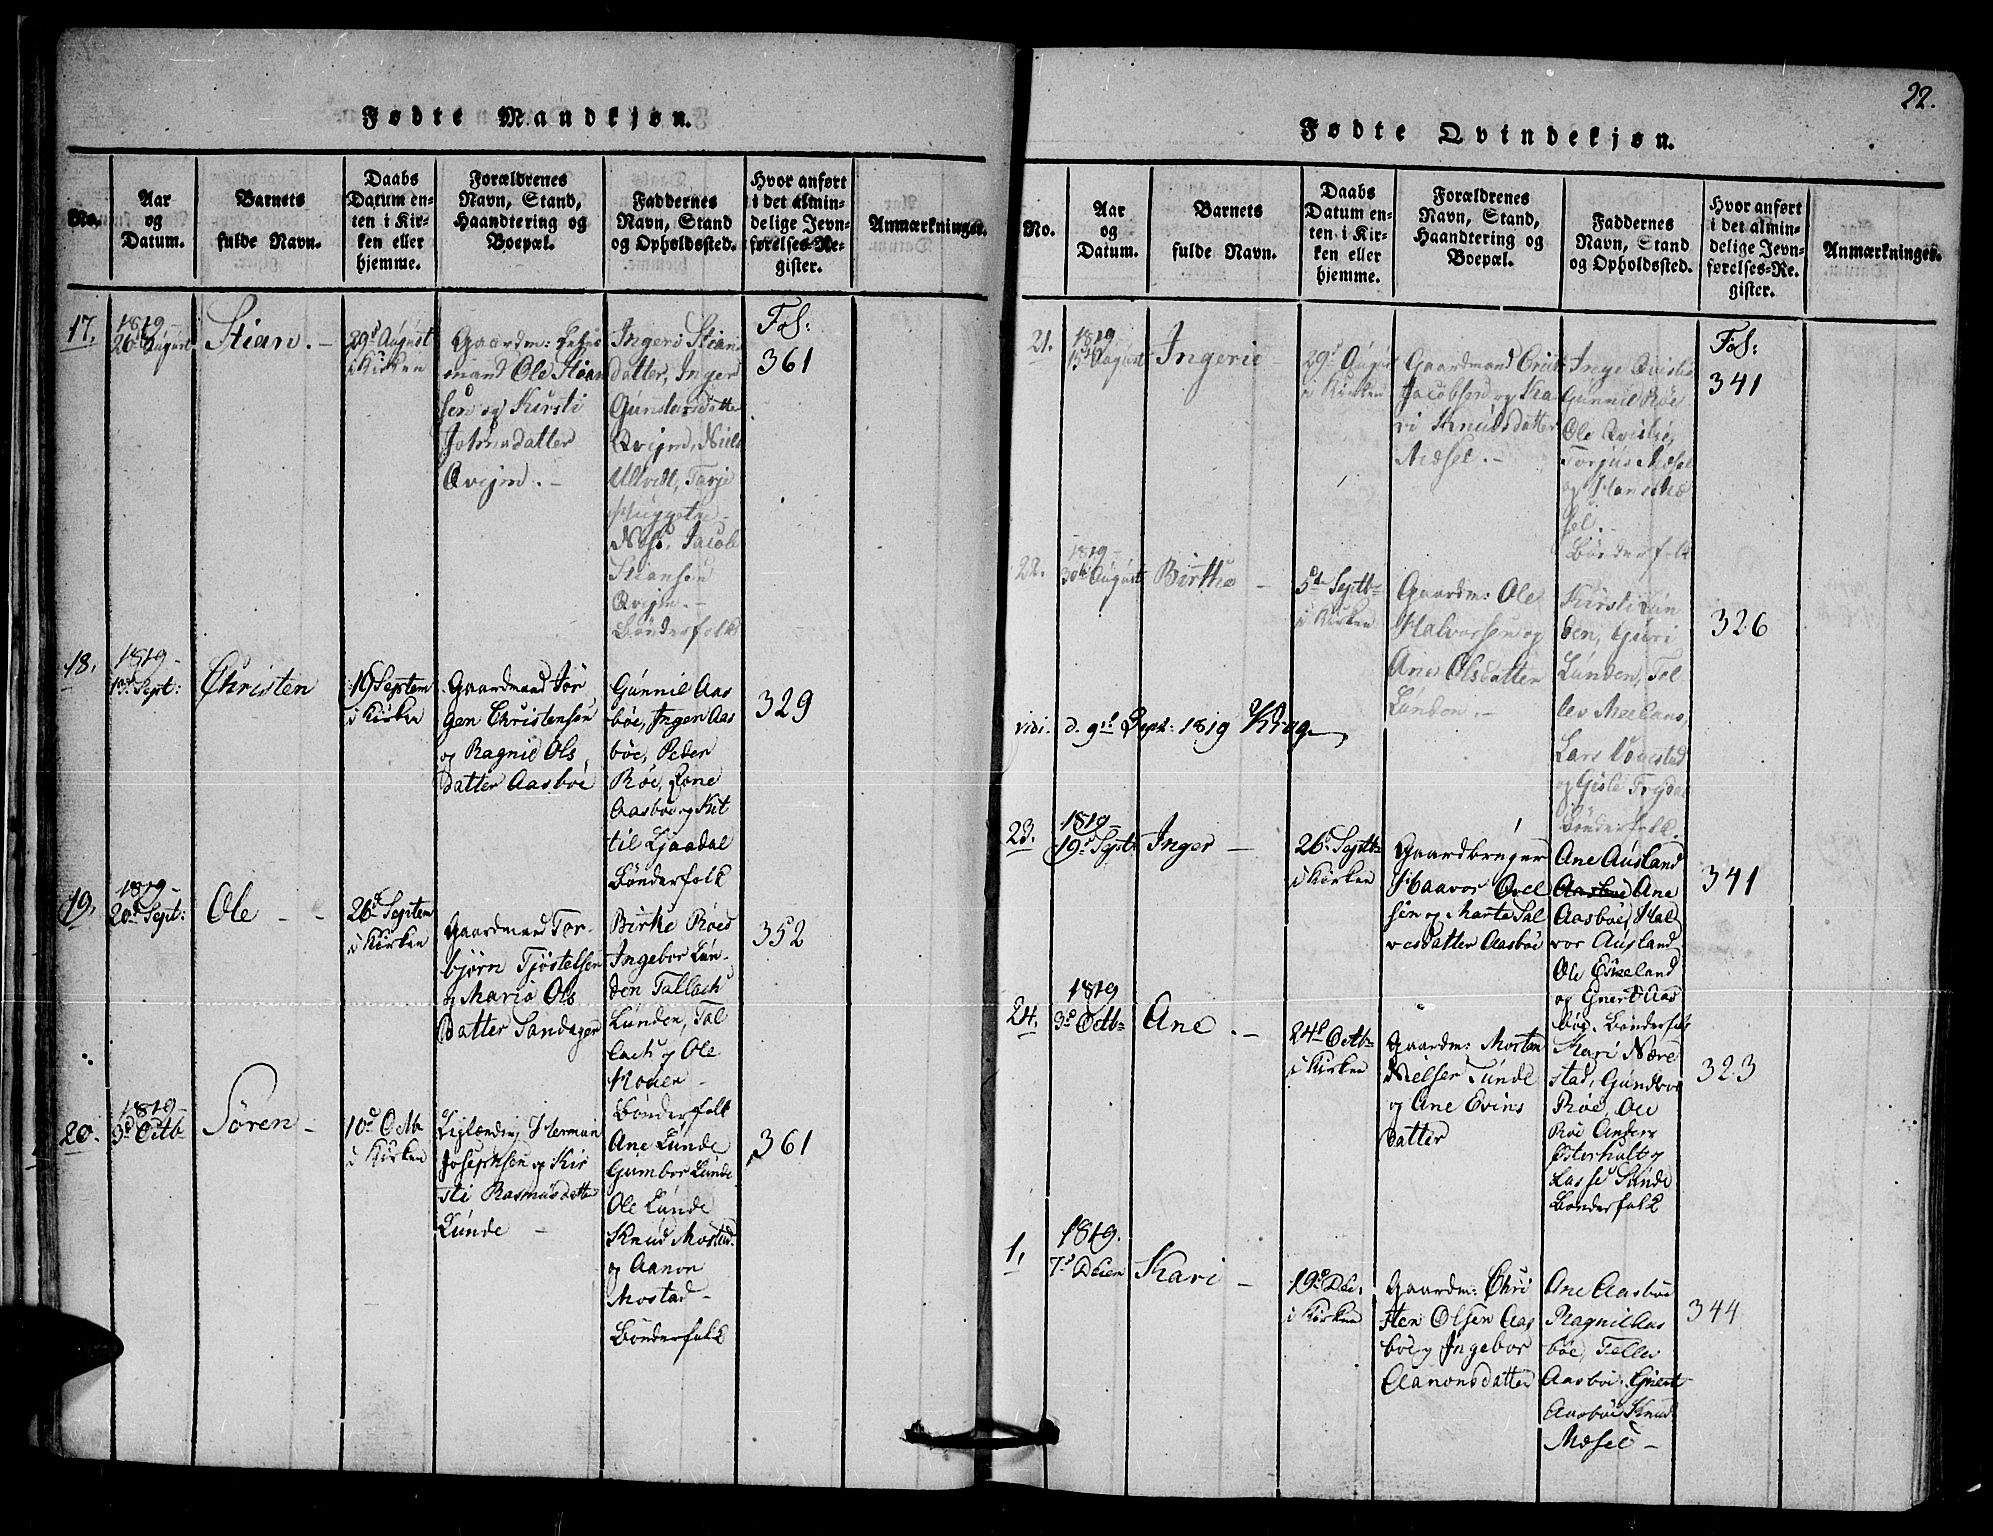 Fødte Mandkjøn.
No.
Aar
og
Datum.
Barnets
fulde Navn.
Daabs
Datum en-
ten i Kir-
ken eller
hjemme.
Forældrenes
Navn, Stand,
Haandtering og
Boepæl.
Faddernes
Navn, Stand
og Opholdssted.
Hvor anført
i det almin-
delige Jevn-
førelses-Re-
gister.
Anmærkninger.
17.
1819
26 August
Stian. -
29d August
i Kirken
Gaardm:
mand Ole Stian
sen og Kirsti
Johnsdatter
Qvijm. -
Ingeri Stians
datter, Inger
Gundersdatter
Qvijm, Niels
Ulvedt, Tarje
Huggetn
Jacob
Stiansen
Qvijm. -
Bönderfolk
Fol:
361
18.
1819
13d Sept:
Christen
19 Septem
i Kirken
Gaardmand Jör
gen Christensen
og Ragnil Ols
datter Aasböe
Gunnil Aas
böe, Inger Aas
böe, Peder
Röe, Lone
Aasböe og Ket
til Ljaadal
Bönderfolk
329
19.
1819
20d Sept:
Ole - -
26d Septem
i Kirken
Gaardmand Tor-
björn Tjöstelsen
og Maria Ols
datter Sandager
Birthe Röed
Ingebor Lun-
den Tallach
Lunden, Tal
lach og Ole
Moden
Bönderfolk
352
20.
1819
3d Octb
Sören -
10d Octb
i Kirken
Leilænding Herman
Josephsen og Kir
sti Rasmusdatter
Lunde -
Ane Lunde
Gumbor Lunde
Ole Lunde
Knud Mostad
og Aanon
Mostad
Bönderfolk
361
22.
Fødte Qvindekjøn.
No.
Aar
og
Datum.
Barnets
fulde Navn.
Daabs
Datum en-
ten i Kir-
ken eller
hjemme.
Forældrenes
Navn, Stand,
Haandtering og
Boepæl.
Faddernes
Navn, Stand
og Opholdssted.
Hvor anført
i det almin-
delige Jevn-
førelses-Re-
gister.
Anmærkninger.
21.
1819
15d August
Ingerie
29d August
i Kirken
Gaardmand Erik
Jacobsen og Ka
ri Knudsdatter
Mæsel. -
Inge Qvistie
Gunnil Röe
Ole Qvistie,
Torjus Mæsel
og Hans Mæ
sel. -
Bönderfolk
Fol:
341
22.
1819
30te August
Birthe -
5d Septb
i Kirken
Gaardm: Ole
Halvorsen og
Ane Olsdatter
Lunden. -
Kirsti Lun
den, Guri
Lunden, Tol
lev Meelaas
Lars Voiestad
og Gisle Frydal
Bönderfolk.
326
vidi. d. 9de Sept: 1819 Krog
23.
1819
19d Septb
Inger -
26d Septb
i Kirken
Gaardbruger
Haavor Ovel
sen og Marte Sal
vesdatter Aasböe
Ane Ausland
Aasböe Ane
Aasböe, Hal
vor Ausland
Ole Eskeland
og Gnert Aas
böe. Bönderfolk
341
24.
1819
3d Octb
Ane. -
24d Octb
i Kirken
Gaardm: Morten
Nielsen Sunde
og Ane Evins
datter
Kari Nære
stad, Gundbor
Röe, Ole
Röe Anders
Österholt og
Lasse Sunde
Bönderfolk
323
1.
1819.
7d Dcien
Kari -
19d Dec.
i Kirken
Gaardm: Chri
sten Olsen Aas
böe og Ingebor
Aanonsdatter
Ane Aasböe
Ragnil Aas
böe, Tellev
Aasböe. Gnert
Aasböe Knud
Mæsel -
344